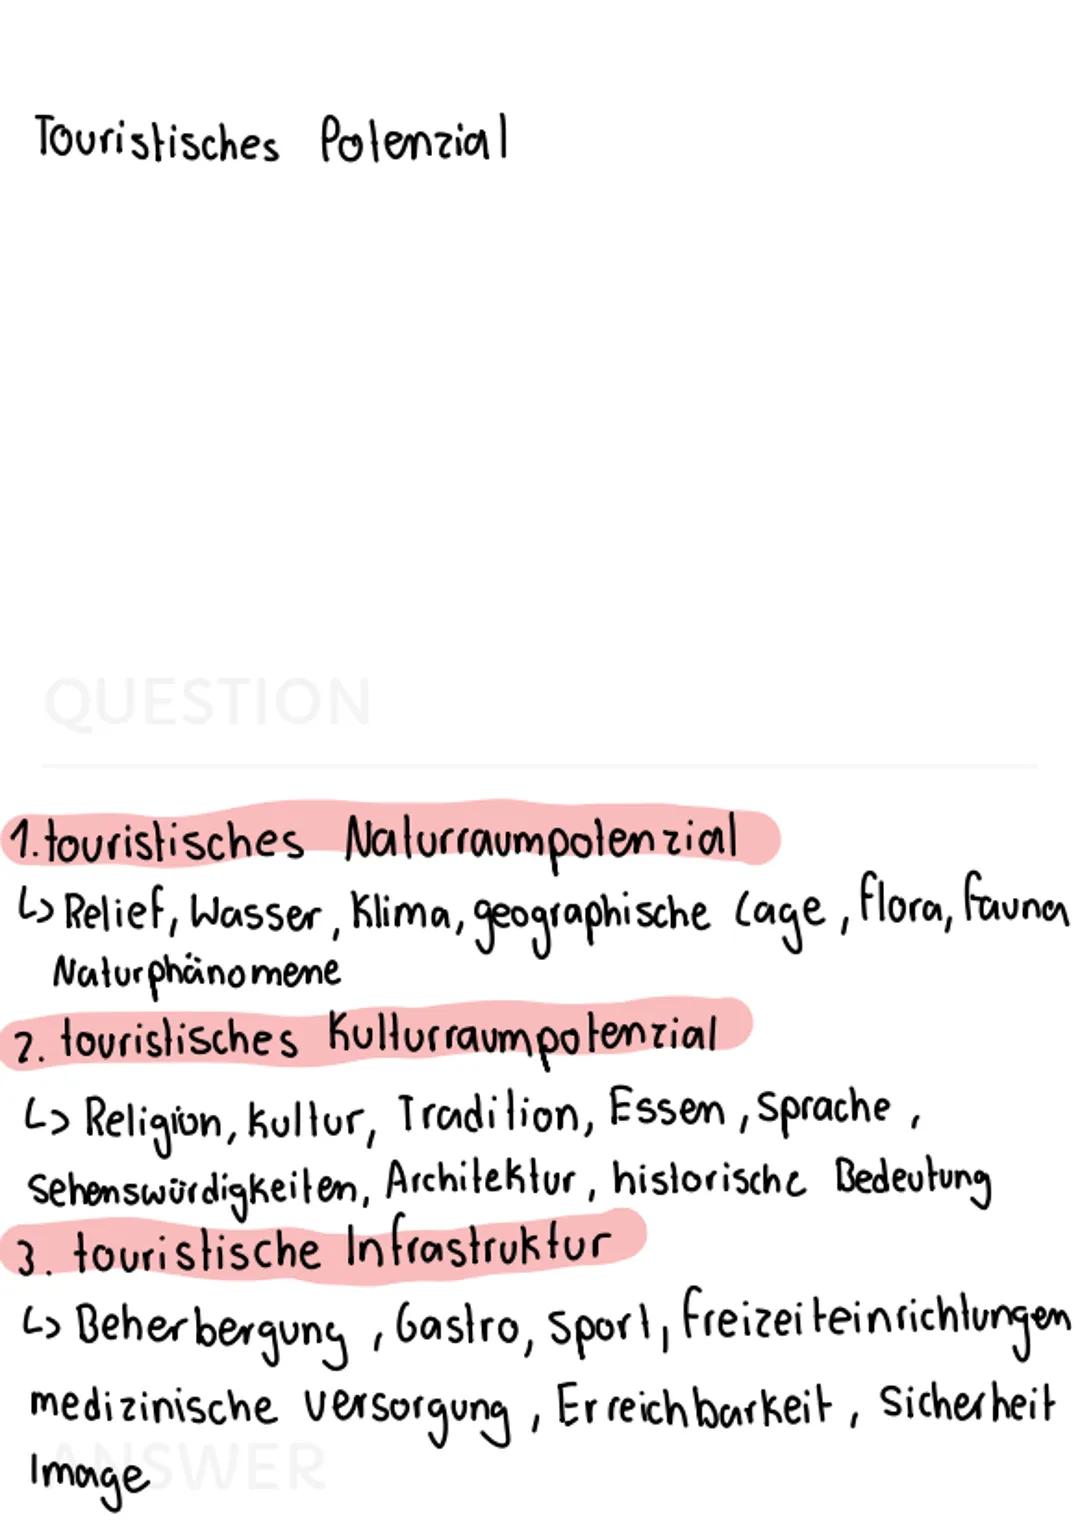 Touristisches Potenzial
QUESTION
1. touristisches Naturraumpotenzial
↳ Relief, Wasser, Klima, geographische Lage, Flora, Fauna
Naturphänomene
2. touristisches Kulturraumpotenzial
↳ Religion, Kultur, Tradition, Essen, Sprache,
Sehenswürdigkeiten, Architektur, historische Bedeutung
3. touristische Infrastruktur
↳ Beherbergung, Gastro, Sport, Freizeiteinrichtungen
medizinische Versorgung, Erreichbarkeit, Sicherheit
Image
ANSWER